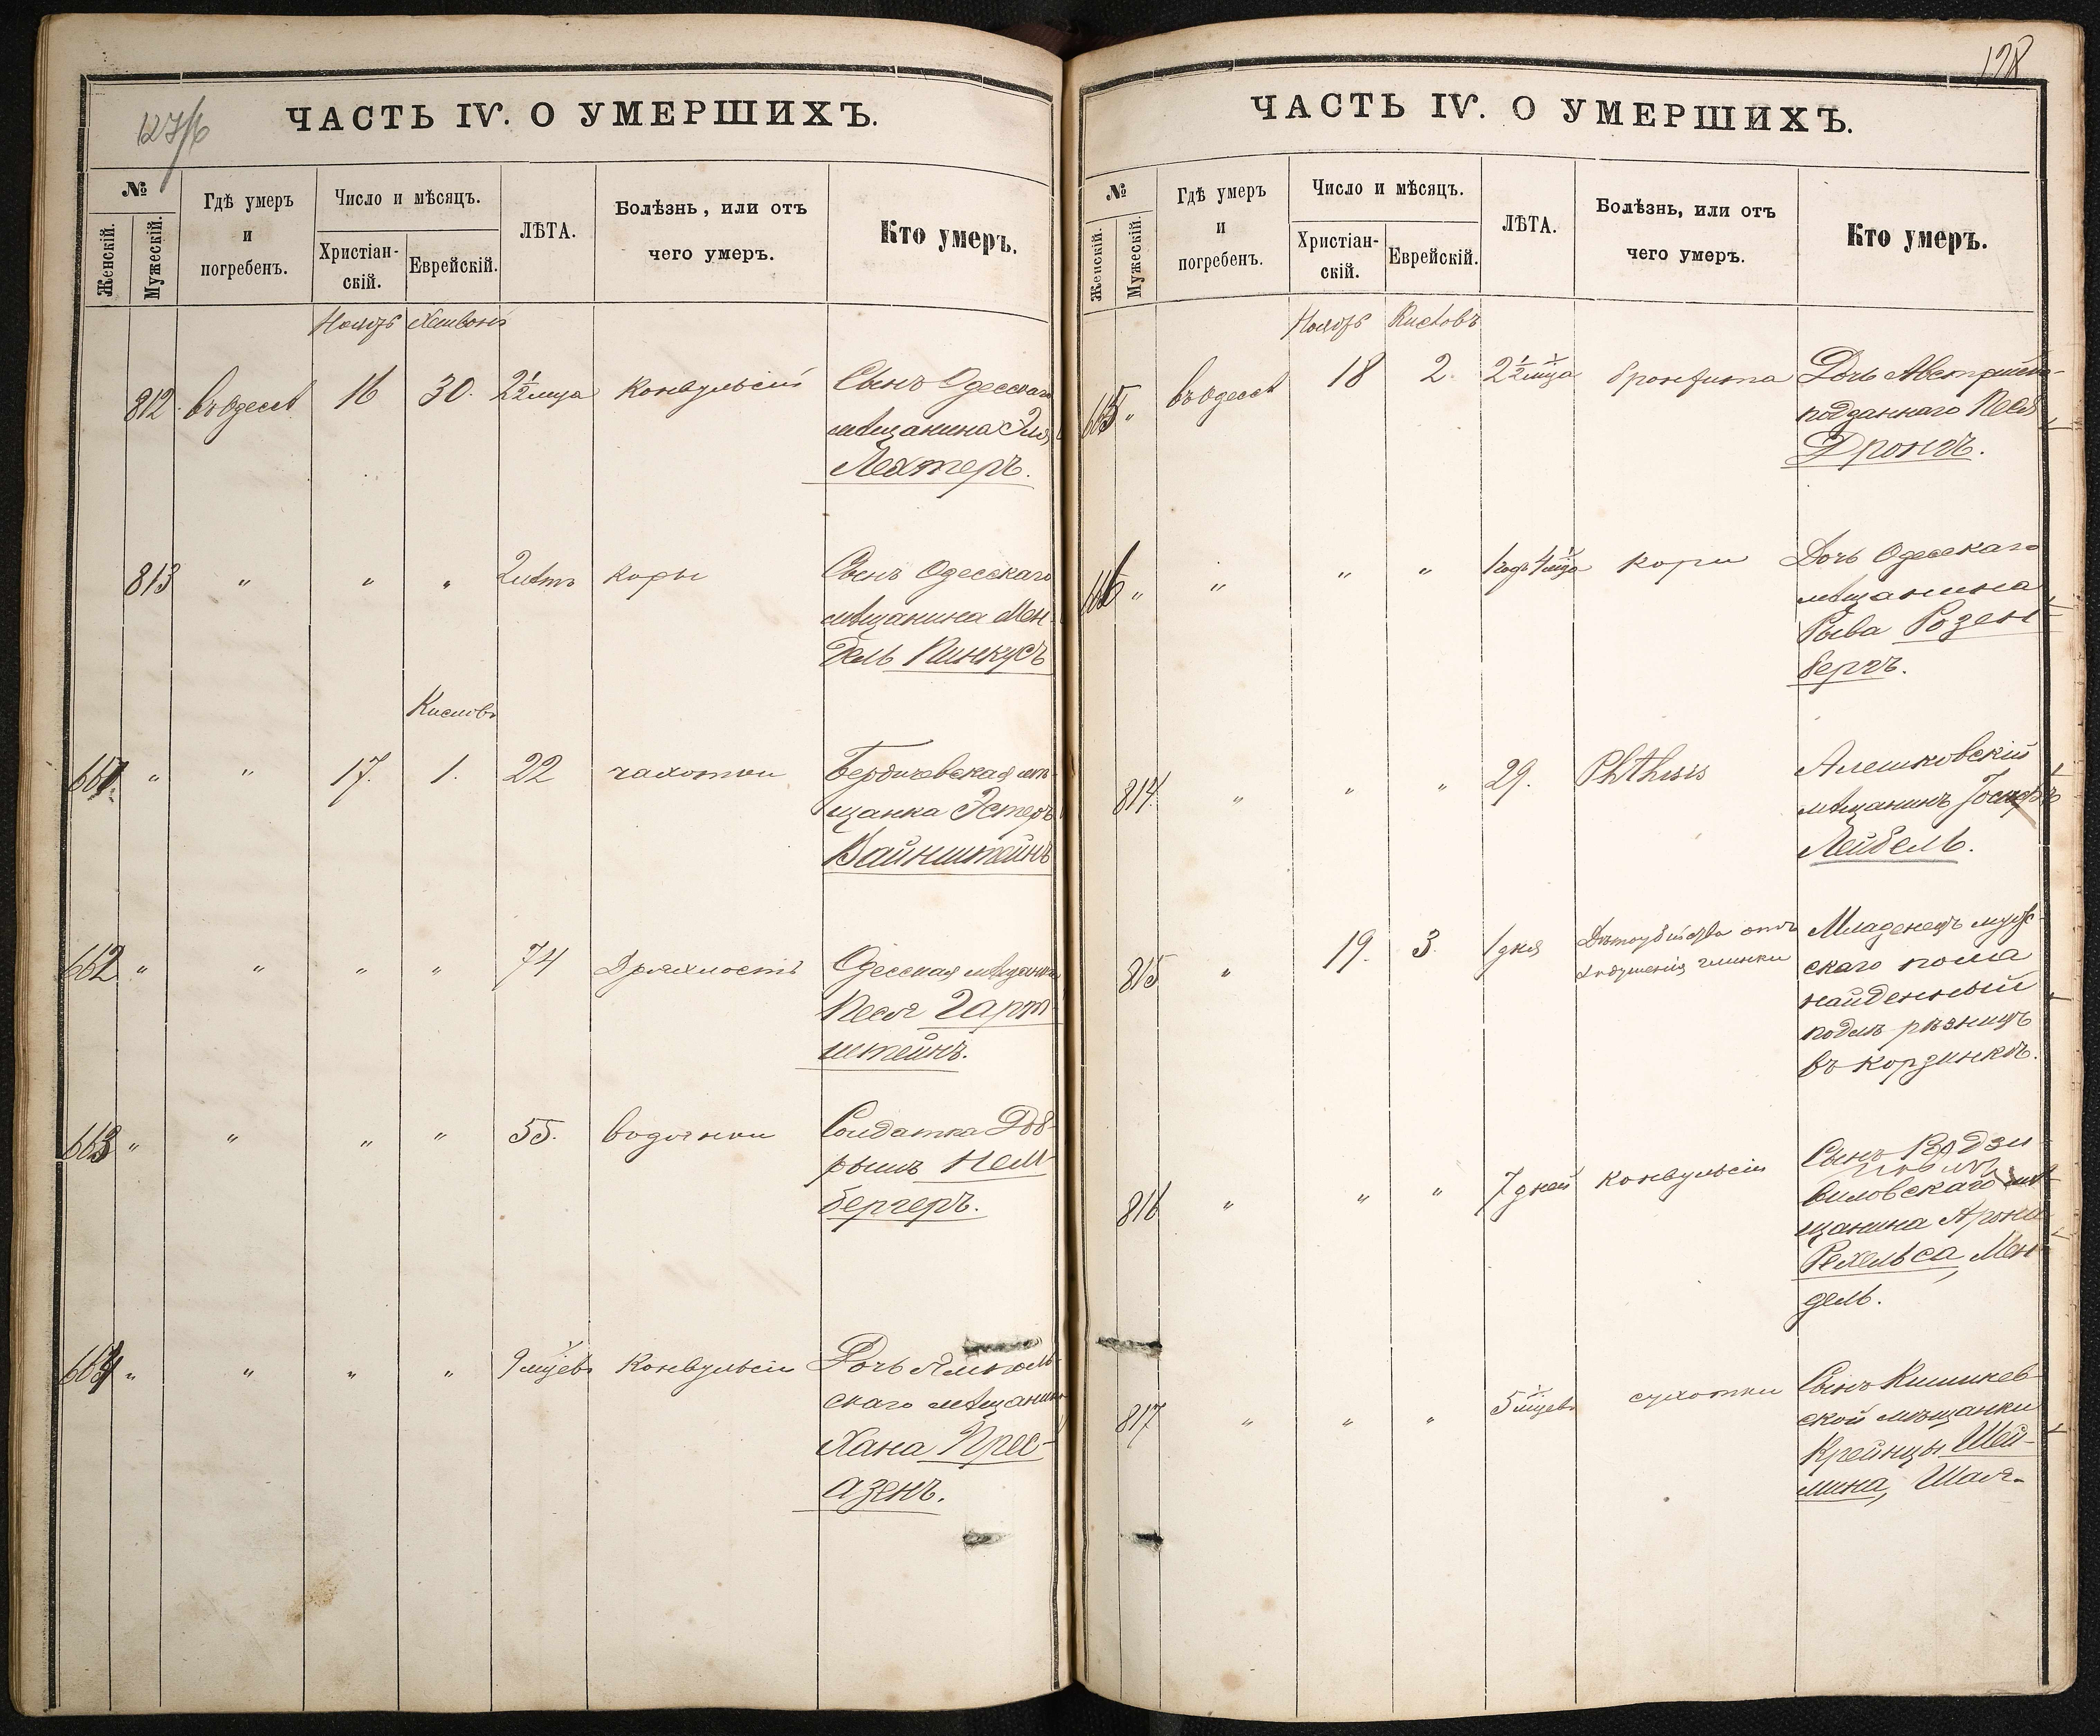 127/б
ЧАСТЬ IV. О УМЕРШИХЪ.
№
Женскій.
Мужескій.
Гдѣ умеръ
и
погребенъ.
Число и мѣсяцъ.
Христіан-
скій.
Еврейскій.
ЛѢТА.
Болѣзнь, или отъ
чего умеръ.
Кто умеръ.
Ноябрь Хешвонъ
812. въ Одессѣ 16 30. 2½ мца Конвульсіи Сынъ Одесскаго
мѣщанина Эля
Лехтеръ.
813 " " " 2 лѣтъ коры Сынъ Одесскаго
мѣщанина Мен-
дель Пинкусъ
Кислевъ
661. " " 17. 1. 22 чахотки Бердичевская мѣ-
щанка Эстеръ
Вайнштейнъ
662 " " " " 74 Дряхлость Одесская мѣщанка
Песя Гарт-
штейнъ.
663 " " " " 55. водянки Солдатка Доб-
рышъ Нем-
бергеръ.
664 " " " " 9 мцевъ Конвульсіи Дочь Ямполь-
скаго мѣщанина
Хана Прес-
азенъ.
128
ЧАСТЬ IV. О УМЕРШИХЪ.
№
Женскій.
Мужескій.
Гдѣ умеръ
и
погребенъ.
Число и мѣсяцъ.
Христіан-
скій.
Еврейскій.
ЛѢТА.
Болѣзнь, или отъ
чего умеръ.
Кто умеръ.
Ноябрь Кислевъ
665 " въ Одессѣ 18 2. 2½ мца бронхита Дочь Австрійско-
подданнаго Песя
Дрондъ.
666 " " " " 1 годъ 4 мца кори Дочь Одесскаго
мѣщанина
Рыва Розен-
бергъ.
814. " " " 29. Phthisis Алешковскій
мѣщанинъ Іосифъ
Лейбель.
815 " 19. 3. 1 дня Дѣтоубійства отъ
задушенія глинки
Младенецъ муже-
скаго пола
найденный
подлѣ рѣзницъ
въ корзинкѣ.
816 " " " 7 дней Конвульсіи Сынъ Радзи
виловскаго мѣ-
щанина Арона
Рехельса, Мен-
дель.
817 " " " 5 мцевъ сухотки Сынъ Кишинев-
ской мѣщанки
Крейнцы Шей-
мина, Шая.